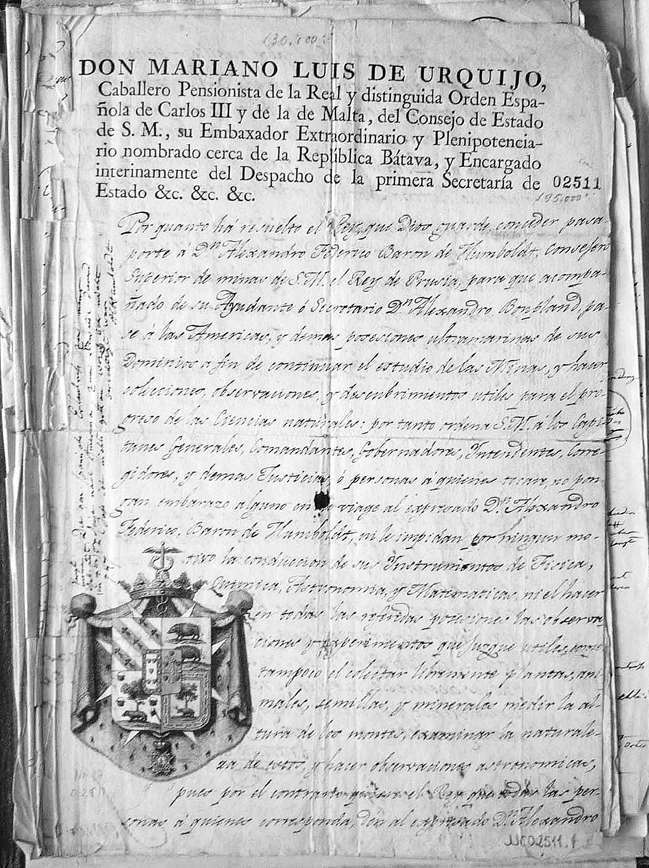 130.000
DON MARIANO LUIS DE URQUIJO,
Caballero Pensionista de la Real y distinguida Orden Espa-
ñola de Carlos III y de la de Malta, del Consejo de Estado
de S. M., su Embaxador Extraordinario y Plenipotencia-
rio nombrado cerca de la República Bátava, y Encargado
interinamente del Despacho de la primera Secretaría de 02511
Estado &c. &c. &c. 195.000
Por quanto há resuelto el Rey, que Dios guarde, conceder pasa-
porte á Dn. Alexandro Federico Baron de Humboldt, Consejero
Superior de minas de S.M. el Rey de Prusia, para que acompa-
ñado de su Ayudante ó Secretario Dn. Alexandro Bonpland, pa-
se á las Americas, y demas posesiones ultramarinas de sus
Dominios a fin de continuar el estudio de las Minas, y hacer
colecciones, observaciones, y descubrimientos utiles para el pro-
greso de las Ciencias naturales: por tanto ordena S.M. á los Capi-
tanes Generales, Comandantes, Gobernadores, Intendentes, Corre-
gidores, y demas Justicias, ó personas á quienes tocare, no pon-
gan embarazo alguno en su viage al expresado Dn. Alexandro
Federico, Baron de Humboldt, ni le impidan por ningun mo-
tivo la conduccion de sus Instrumentos de Fisica,
Quimica, Astronomia, y Matematicas, ni el hacer
en todas las referidas posesiones las observa-
ciones y experimentos que juzgue utiles, como
tampoco el colectar libremente plantas, ani-
males, semillas, y minerales, medir la al-
tura de los montes, examinar la naturale-
za de estos, y hacer observaciones astronomicas,
pues por el contrario quiere el Rey que todas las per-
sonas á quienes corresponda, den al expresado Dn. Alexandro
02511